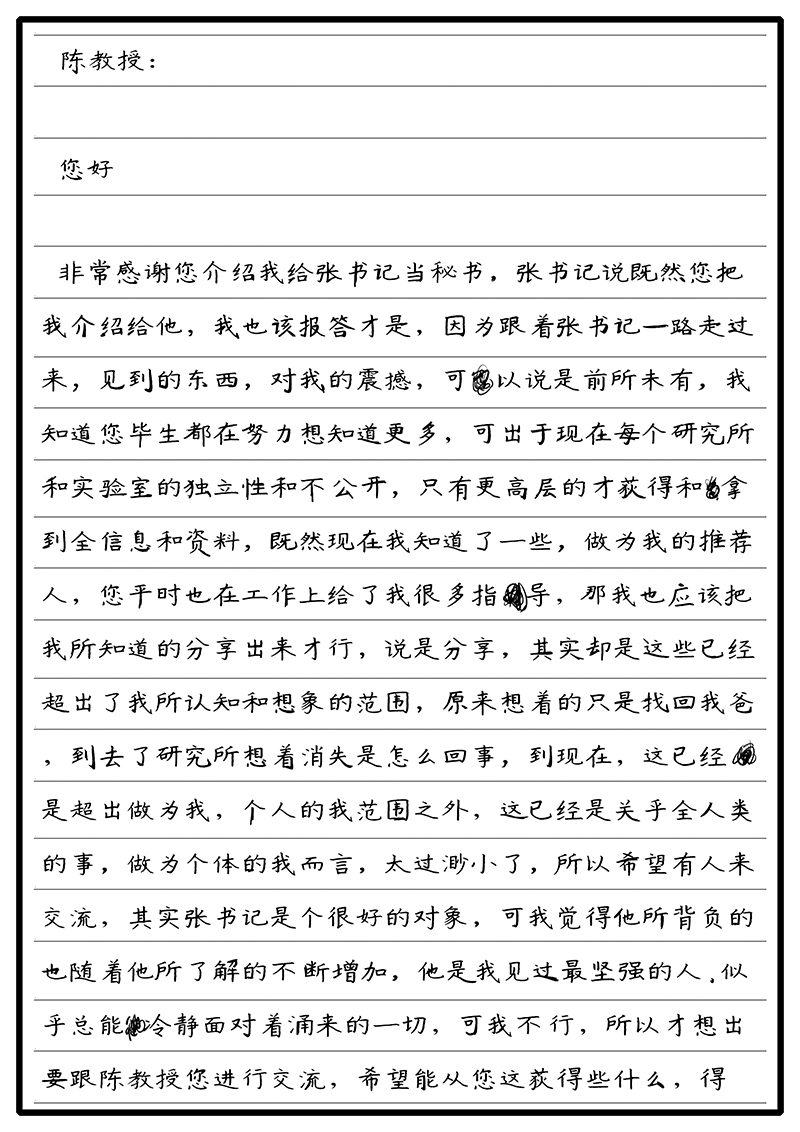 陈教授：
您好
非常感谢您介绍我给张书记当秘书，张书记说既然您把
我介绍给他，我也该报答才是，因为跟着张书记一路走过
来，见到的东西，对我的震撼，可以说是前所未有，我
知道您毕生都在努力想知道更多，可出于现在每个研究所
和实验室的独立性和不公开，只有更高层的才获得和拿
到全信息和资料，既然现在我知道了一些，做为我的推荐
人，您平时也在工作上给了我很多指导，那我也应该把
我所知道的分享出来才行，说是分享，其实却是这些已经
超出了我所认知和想象的范围，原来想着的只是找回我爸
，到去了研究所想着消失是怎么回事，到现在，这已经
是超出做为我，个人的我范围之外，这已经是关乎全人类
的事，做为个体的我而言，太过渺小了，所以希望有人来
交流，其实张书记是个很好的对象，可我觉得他所背负的
也随着他所了解的不断增加，他是我见过最坚强的人.似
乎总能冷静面对着涌来的一切，可我不行，所以才想出
要跟陈教授您进行交流，希望能从您这获得些什么，得